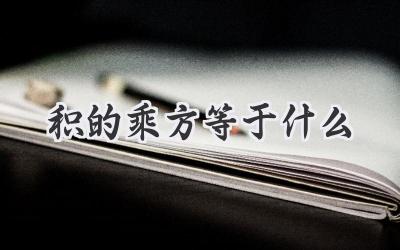 积的乘方等于什么